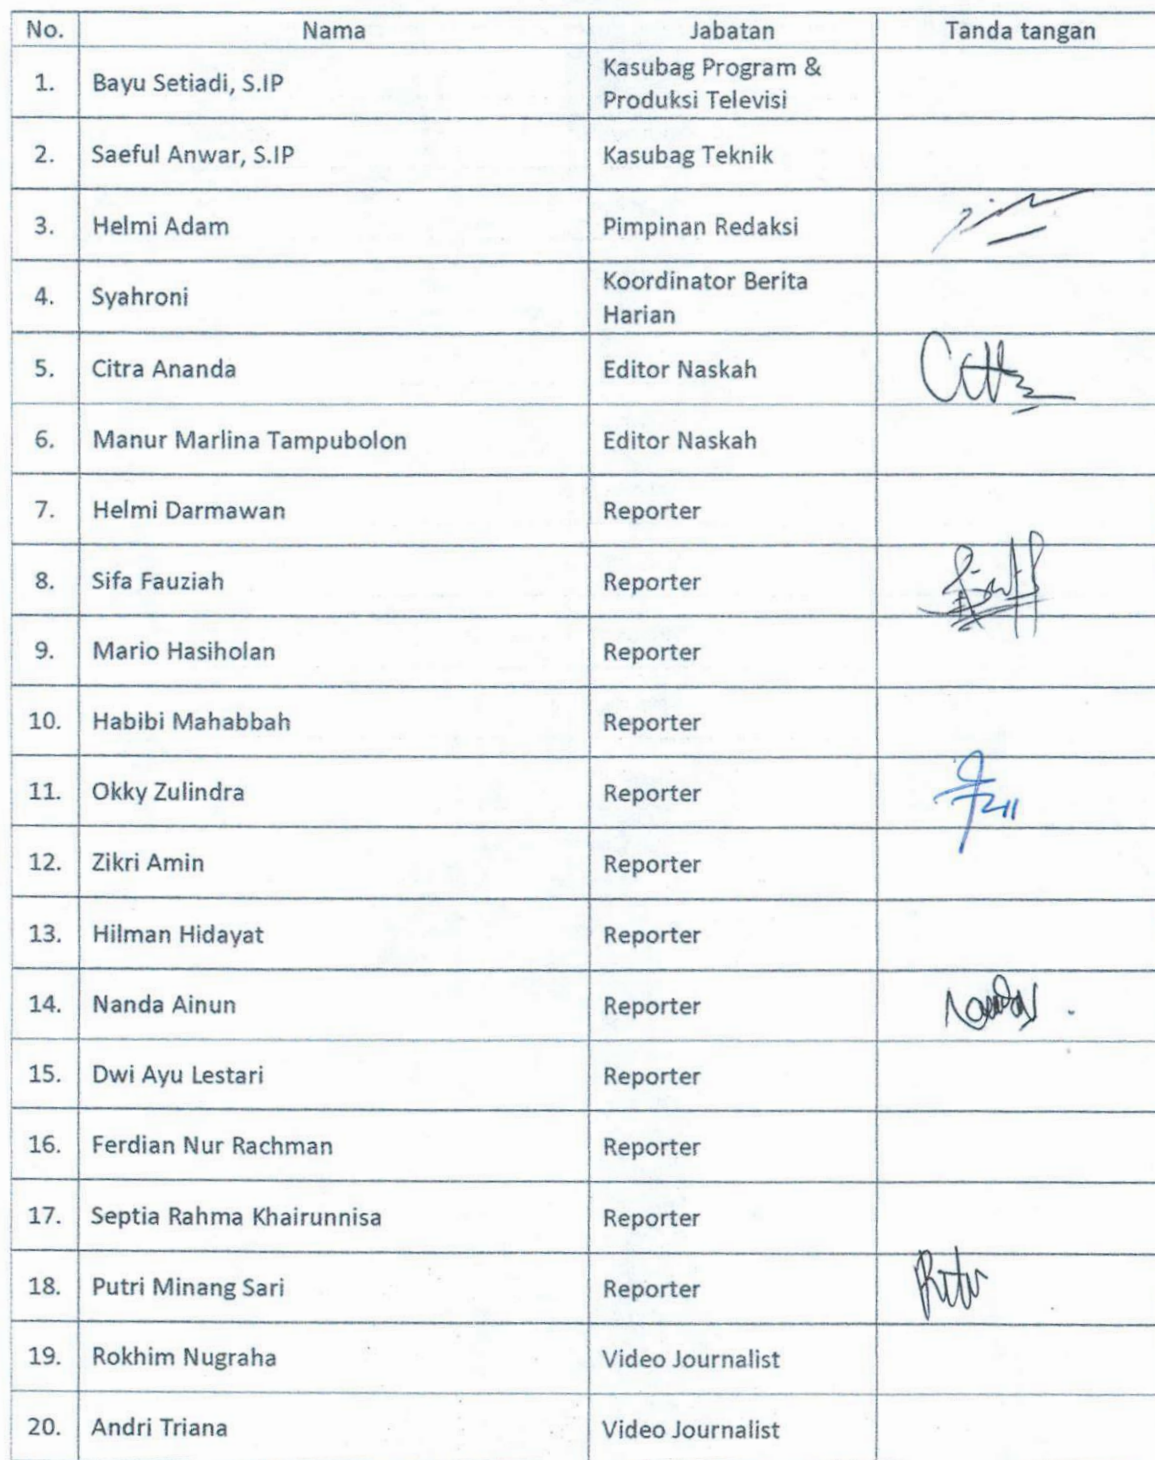 No. Nama Jabatan Tanda tangan
1. Bayu Setiadi, S.IP Kasubag Program &
Produksi Televisi
2. Saeful Anwar, S.IP Kasubag Teknik
3. Helmi Adam Pimpinan Redaksi
4. Syahroni Koordinator Berita
Harian
5. Citra Ananda Editor Naskah
6. Manur Marlina Tampubolon Editor Naskah
7. Helmi Darmawan Reporter
8. Sifa Fauziah Reporter
9. Mario Hasiholan Reporter
10. Habibi Mahabbah Reporter
11. Okky Zulindra Reporter
12. Zikri Amin Reporter
13. Hilman Hidayat Reporter
14. Nanda Ainun Reporter
15. Dwi Ayu Lestari Reporter
16. Ferdian Nur Rachman Reporter
17. Septia Rahma Khairunnisa Reporter
18. Putri Minang Sari Reporter
19. Rokhim Nugraha Video Journalist
20. Andri Triana Video Journalist